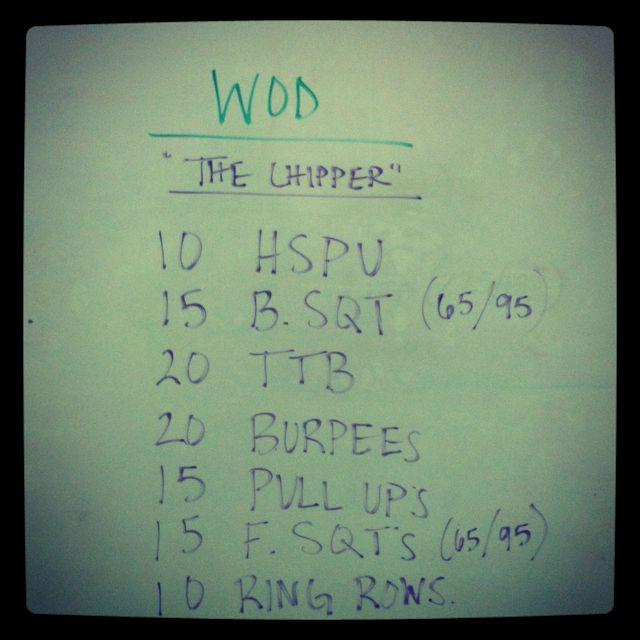 WOD
"THE CHIPPER"
10 HSPU
15 B. SQT (65/95)
20 TTB
20 BURPEES
15 PULL UP'S
15 F. SQT'S (65/95)
10 RING ROWS.